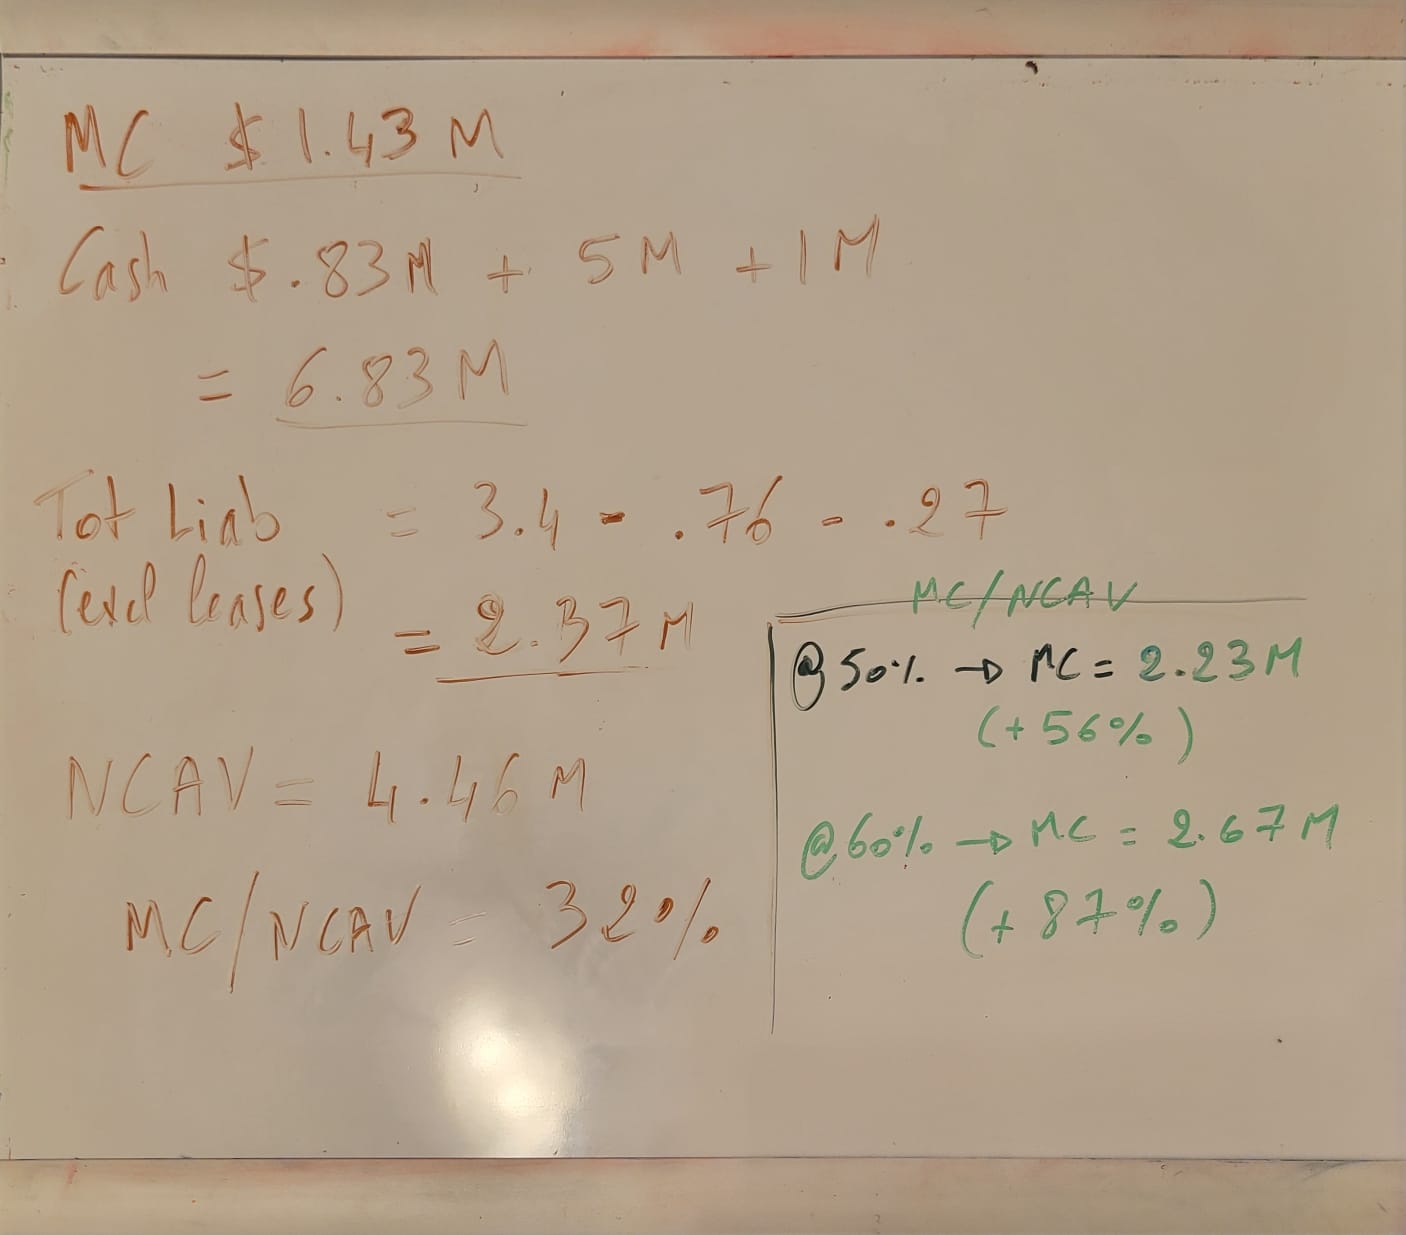 MC $ 1.43 M
Cash $.83M + 5M + 1M
= 6.83M
Tot Liab = 3.4 - .76 - .27
(excl leases)
= 2.37M
NCAV = 4.46M
MC/NCAV = 32%
MC/NCAV
@50% → MC = 2.23M
(+56%)
@60% → MC = 2.67M
(+87%)